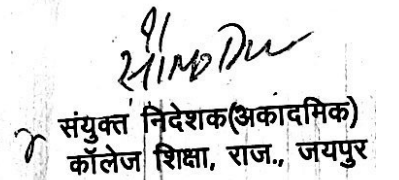 संयुक्त निदेशक(अकादमिक)
कॉलेज शिक्षा, राज., जयपुर